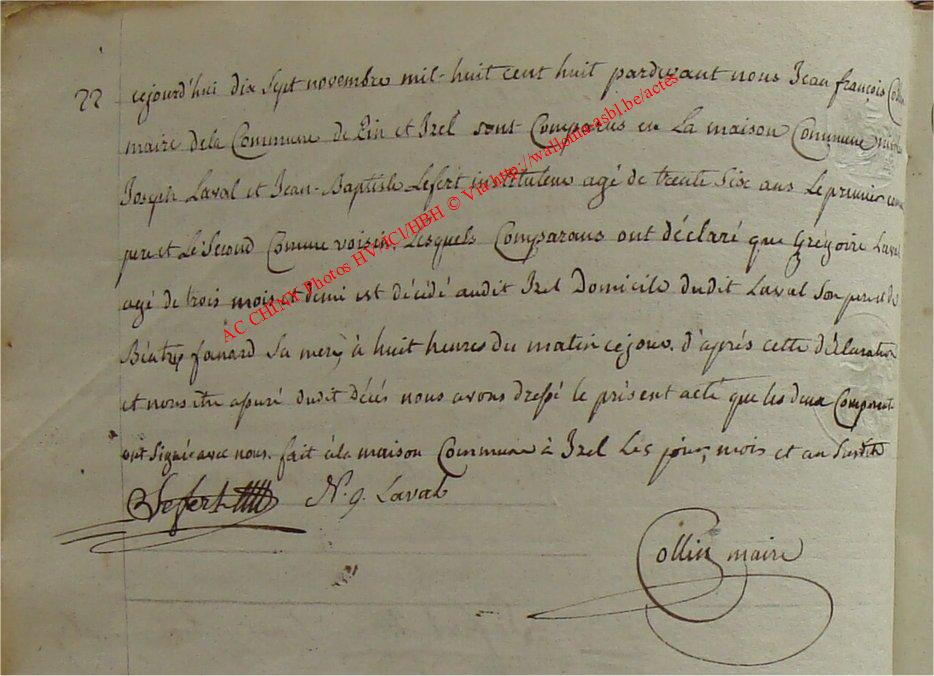 22 cejourd'hui dix sept novembre mil-huit cent huit pardevant nous Jean françois Collin
maire dela Commune de Pin et Izel sont Comparus en La maison Commune
Joseph Laval et Jean-Baptiste Lefert instituteur agé de trente six ans Le premier comme
pere et Le Second Comme voisin, Lesquels Comparans ont déclaré que Grégoire Laval
agé de trois mois et demi est décédé audit Izel Domicile dudit Laval Son pere et de
Béatrix fanard Sa mere, à huit heures du matin cejour. d'après cette déclaration
et nous etre assuré dudit décès nous avons dressé le présent acte que les deux Comparants
ont Signé avec nous. fait à la maison Commune à Izel Les jour, mois et an Susdits
Lefert N. J. Laval
Collin maire
AC CHINY Photos HV/ACI/HBH © Via http://wallonia.asbl.be/actes